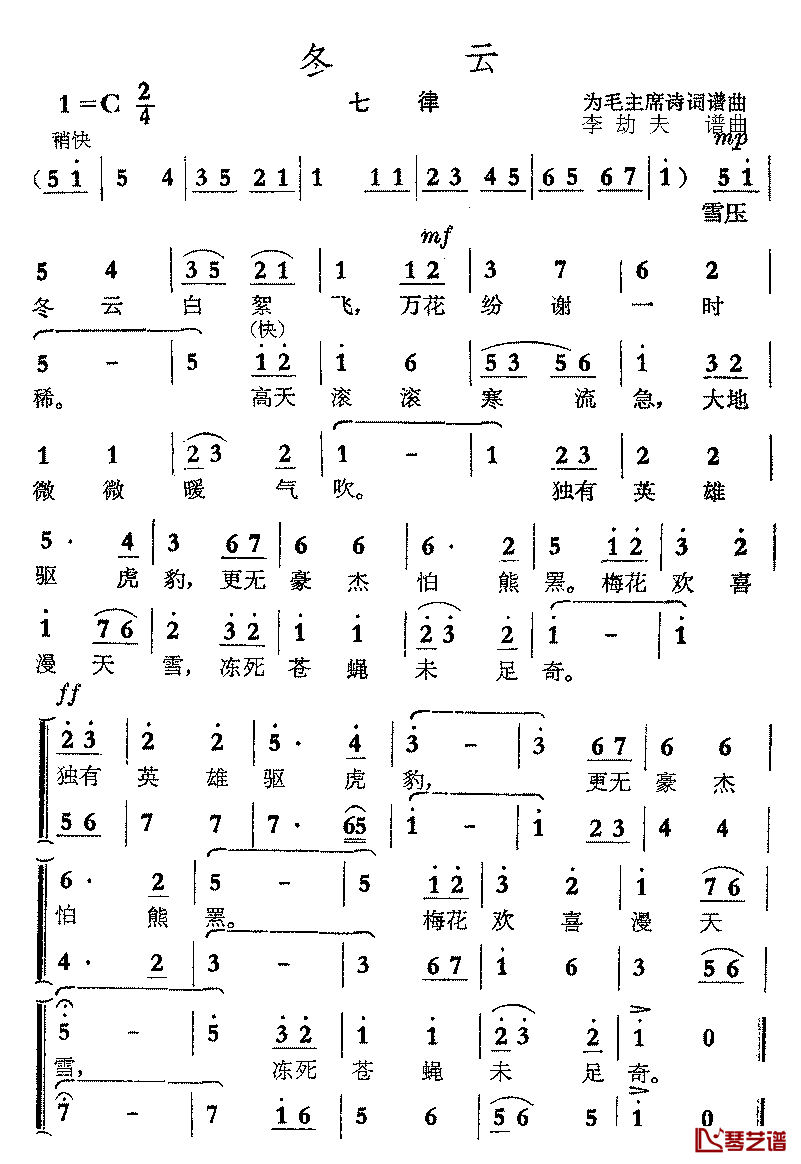 冬 云
1=C 2/4 七 律 为毛主席诗词谱曲
稍快 李劫夫 谱曲
mp
(5 i | 5 4 | 3 5 2 1 | 1 1 1 | 2 3 4 5 | 6 5 6 7 | i) 5 i |
雪压
mf
5 4 | 3 5 2 1 | 1 1 2 | 3 7 | 6 2 |
冬 云 白 絮 飞, 万花 纷 谢 一 时
(快)
5 - | 5 i 2̇ | i 6 | 5 3 5 6 | i 3 2 |
稀。 高天 滚 滚 寒 流 急, 大地
1 1 | 2 3 2 | 1 - | 1 2 3 | 2 2 |
微 微 暖 气 吹。 独有 英 雄
5 · 4 | 3 6 7 | 6 6 | 6 · 2 | 5 i 2̇ | 3̇ 2̇ |
驱 虎 豹, 更无 豪 杰 怕 熊 罴。 梅花 欢 喜
i 7 6 | 2̇ 3̇ 2̇ | i i | 2̇ 3̇ 2̇ | i - | i
漫 天 雪, 冻死 苍 蝇 未 足 奇。
ff
2̇ 3̇ | 2̇ 2̇ | 5̇ · 4̇ | 3̇ - | 3̇ 6 7 | 6 6
独有 英 雄 驱 虎 豹, 更无 豪 杰
5 6 | 7 7 | 7 · 6 5 | i - | i 2 3 | 4 4
6 · 2 | 5 - | 5 i 2̇ | 3̇ 2̇ | i 7 6
怕 熊 罴。 梅花 欢 喜 漫 天
4 · 2 | 3 - | 3 6 7 | i 6 | 3 5 6
5̇ - | 5̇ 3̇ 2̇ | i i | 2̇ 3̇ 2̇ | i 0 ‖
雪, 冻死 苍 蝇 未 足 奇。
7 - | 7 i 6 | 5 6 | 5 6 5 | i 0 ‖
琴艺谱